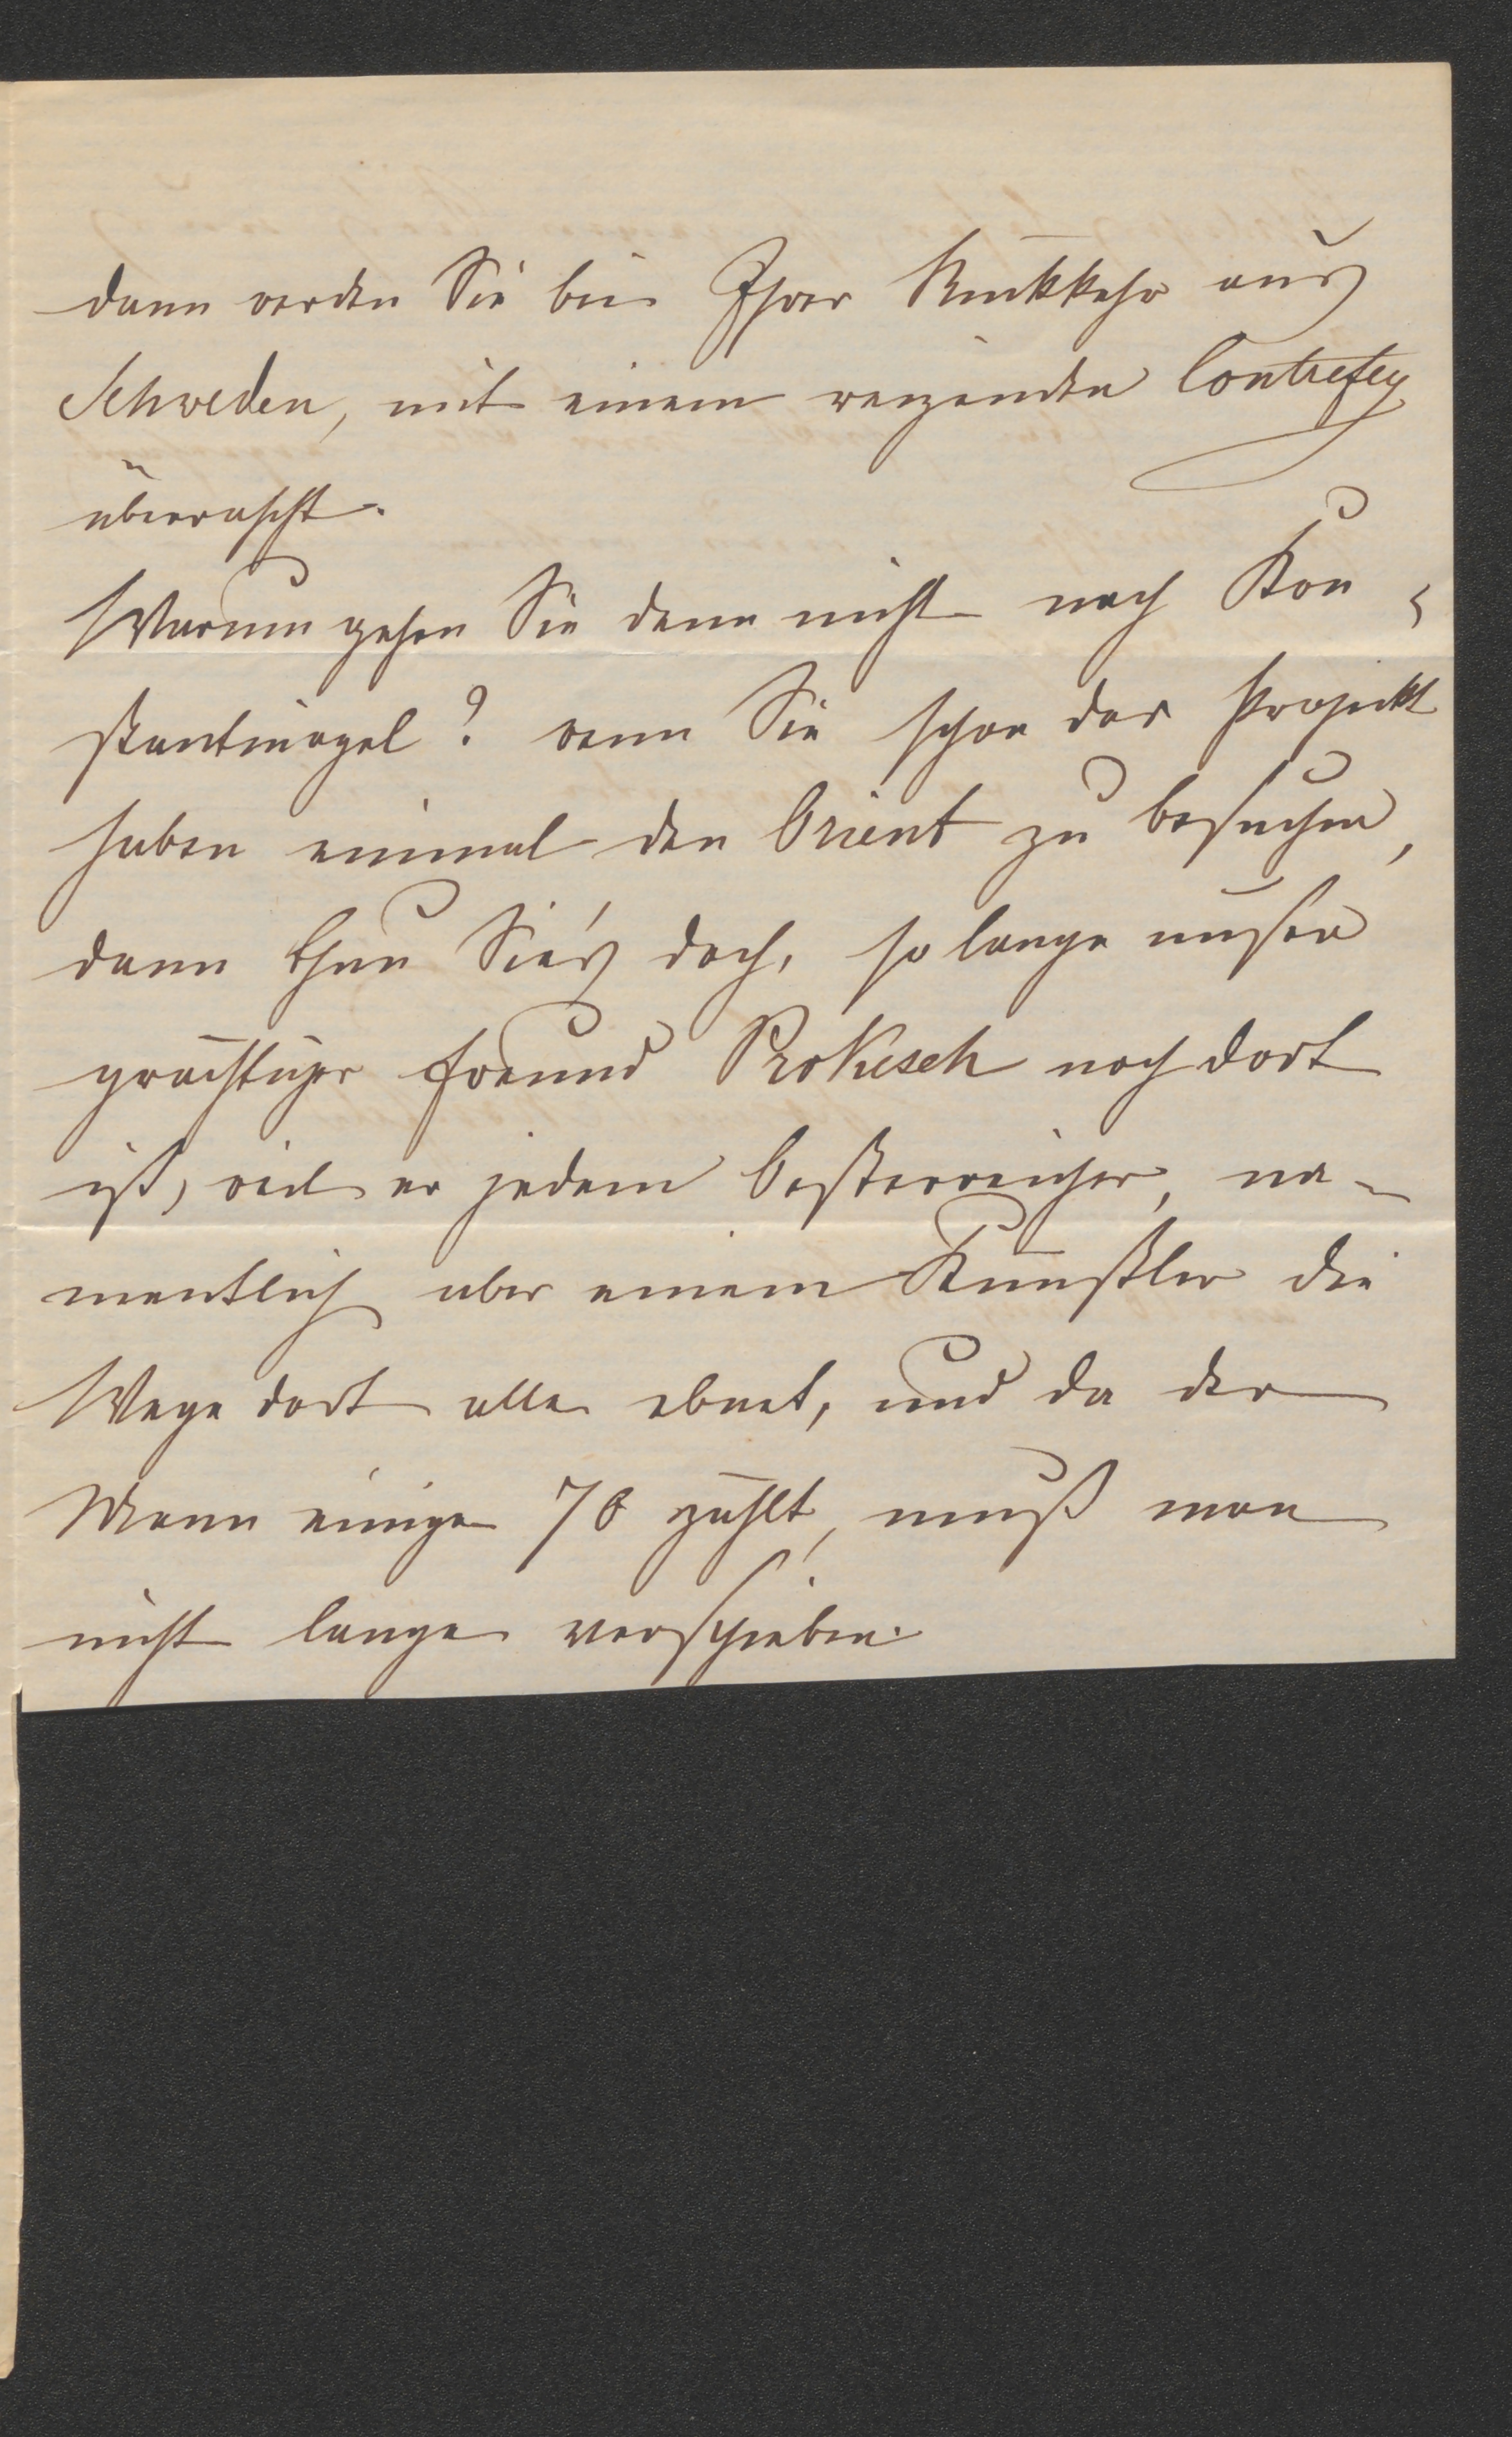 dann werden Sie bei Ihrer Rückkehr aus
Schweden, mit einem reizenden Contrefey
überrascht.
Warum gehen Sie denn nicht nach Kon-
stantinopel? wenn Sie schon das Projekt
haben einmal den Orient zu besuchen,
dann thun Sie's doch, so lange unser
prächtiger Freund Prokesch noch dort
ist, weil er jedem Oesterreicher, na-
mentlich aber einem Künstler die
Wege dort alle ebnet, und da der
Mann einige 70 zählt, muß man
nicht lange verschieben.